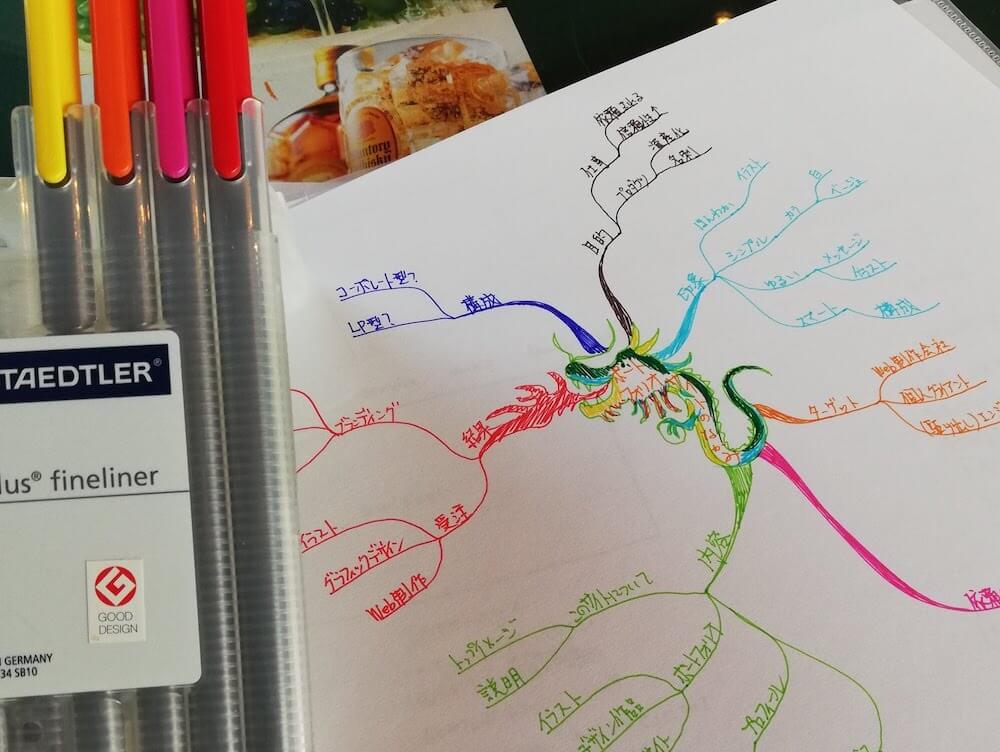 Suntory
Whisky
TAEDTLER®
lus® fineliner
GOOD
DESIGN
GERMANY
34 SB10
目的
仕事
信頼性↑
プロダクツ
名刺
コーポレート型?
LP型?
構成
印象
ほんわか
イラスト
シンプル
カラー
白
ベージュ
ゆるい
メッセージ
イラスト
スマート
構成
ターゲット
Web制作会社
個人クライアント
駆け出しエン
ポートフォリオ
ブランディング
受注
イラスト
グラフィックデザイン
Web制作
内容
このサイトについて
トップイメージ
説明
ポートフォリオ
イラスト
デザイン作品
サイト
プロフィール
依頼